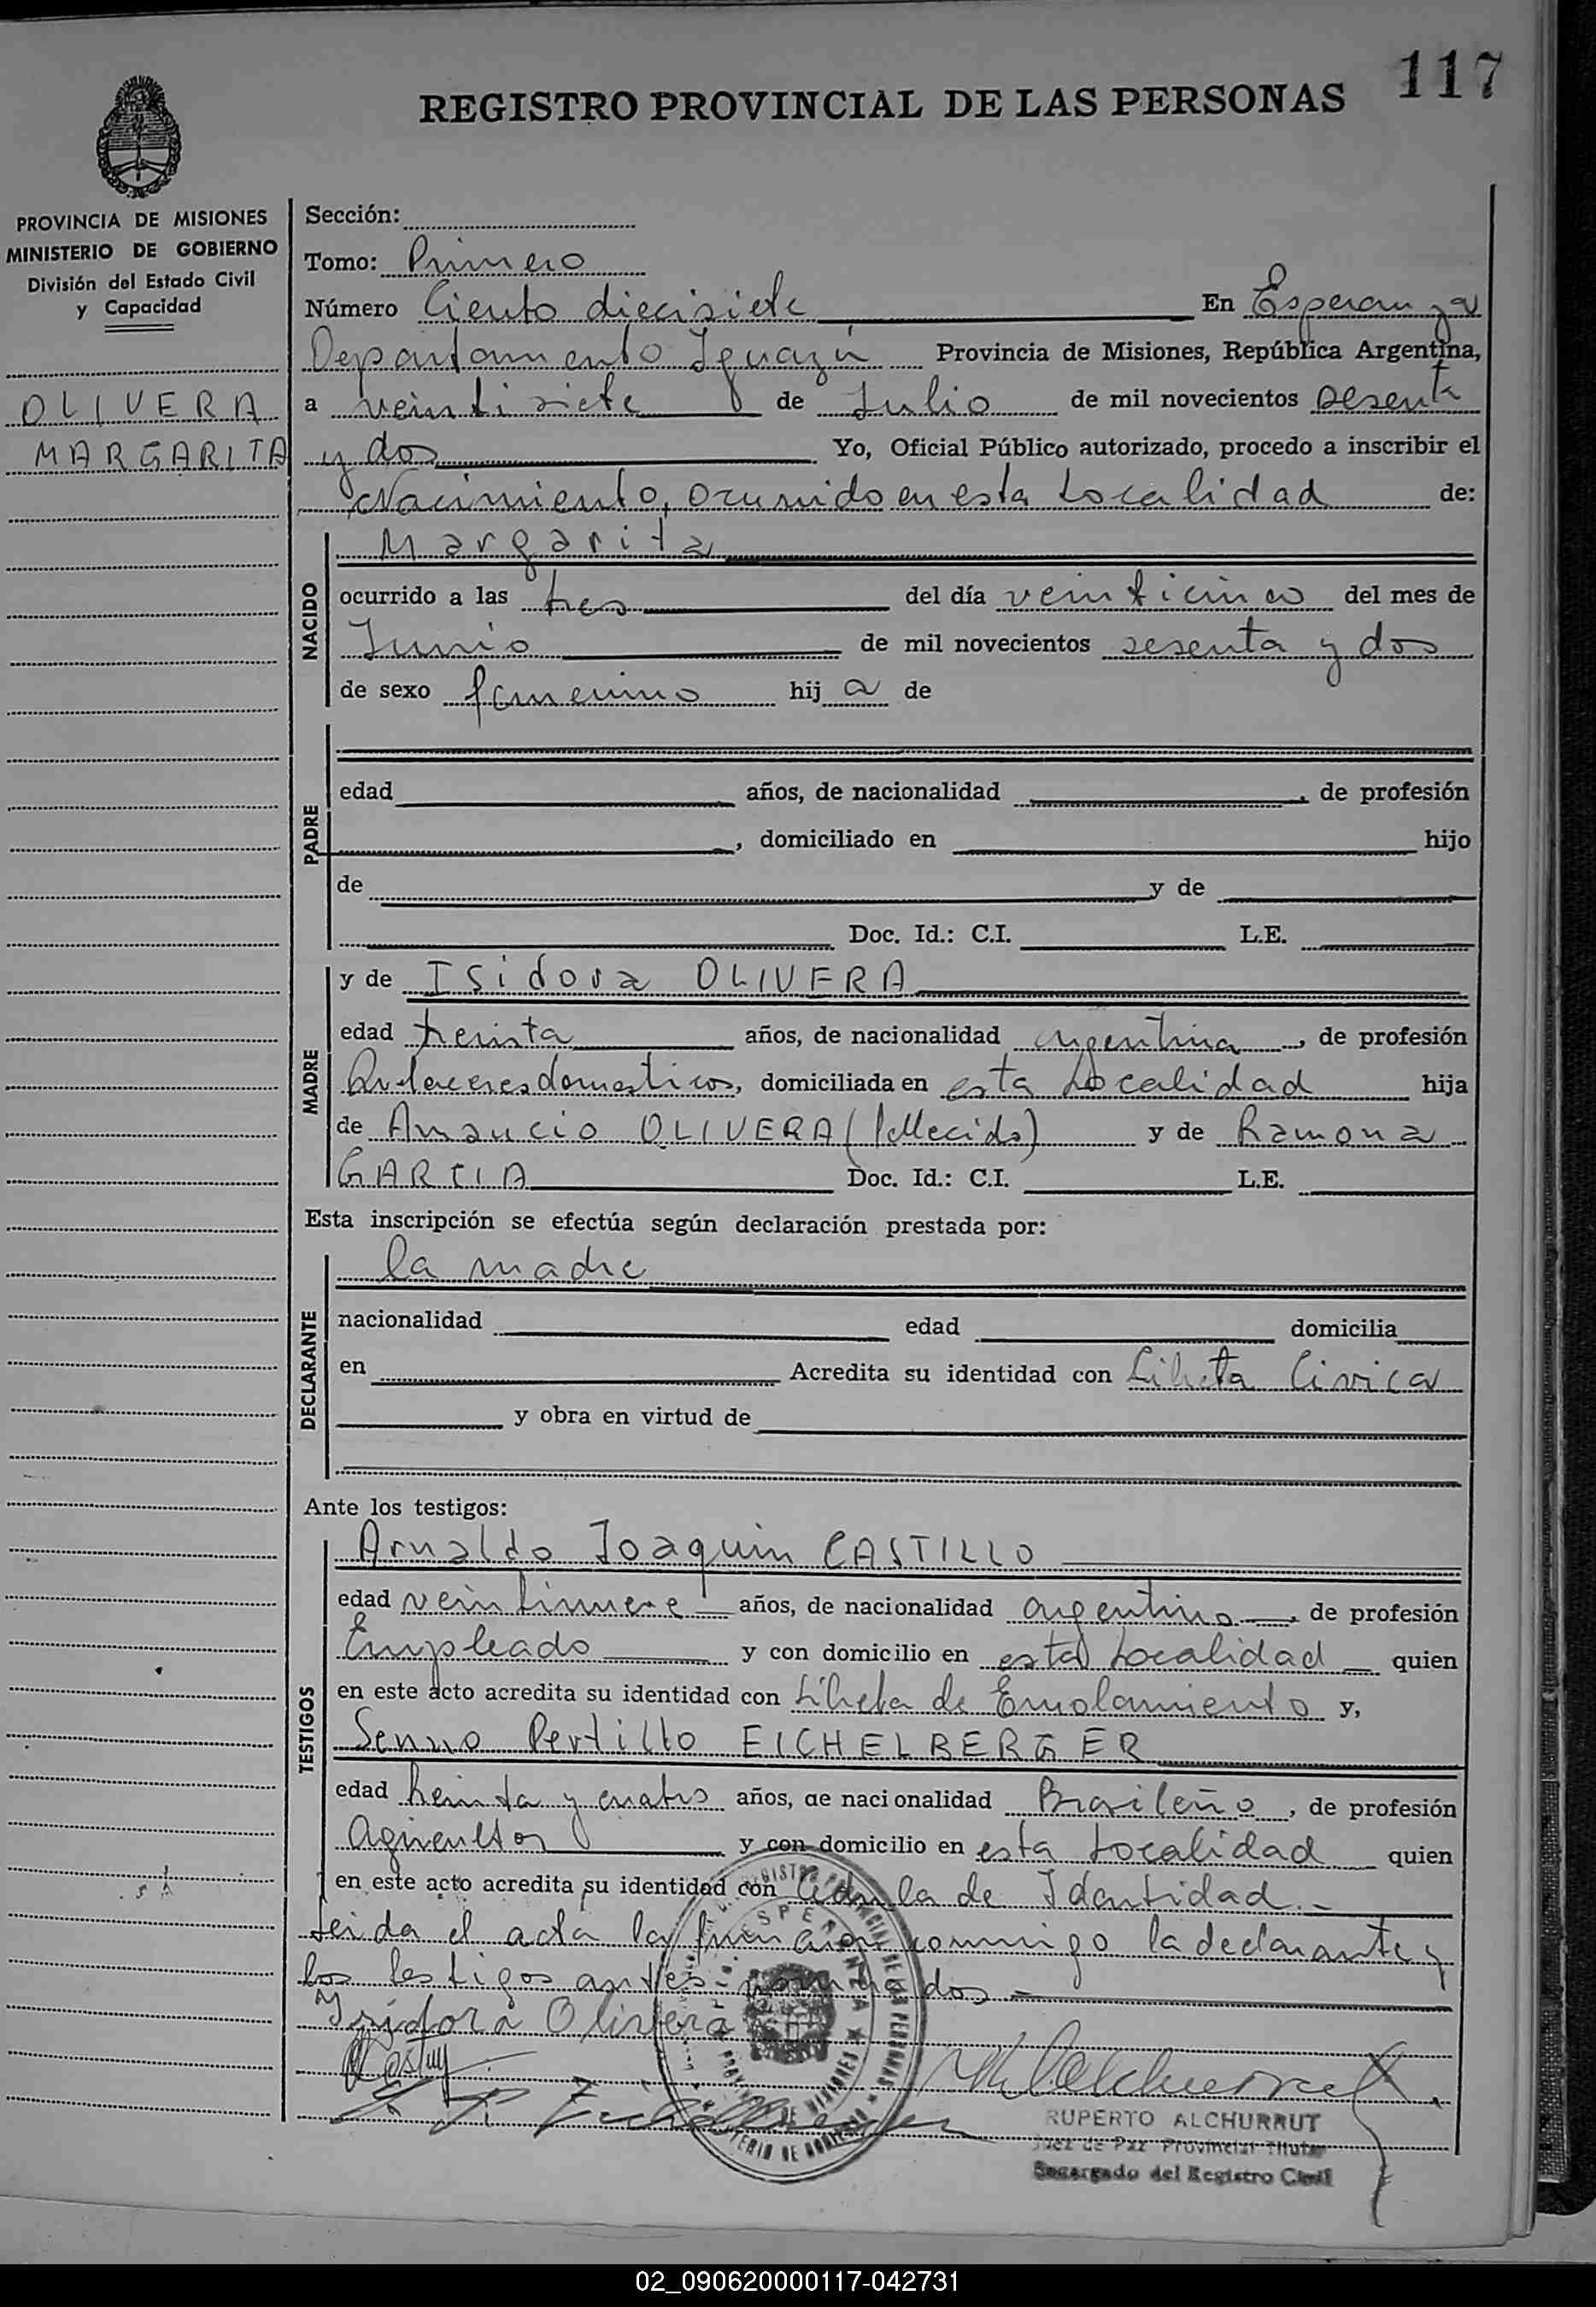 117
REGISTRO PROVINCIAL DE LAS PERSONAS
PROVINCIA DE MISIONES
MINISTERIO DE GOBIERNO
División del Estado Civil
y Capacidad
OLIVERA
MARGARITA
Sección:
Tomo: Primero
Número Ciento diecisiete En Esperanza
Departamento Iguazú Provincia de Misiones, República Argentina,
a veintisiete de Julio de mil novecientos sesenta
y dos Yo, Oficial Público autorizado, procedo a inscribir el
Nacimiento, ocurrido en esta Localidad de:
NACIDO
Margarita
ocurrido a las tres del día veinticinco del mes de
Junio de mil novecientos sesenta y dos
de sexo femenino hija de
PADRE
edad años, de nacionalidad , de profesión
, domiciliado en hijo
de y de
Doc. Id.: C.I. L.E.
MADRE
y de Isidora OLIVERA
edad treinta años, de nacionalidad argentina, de profesión
Quehaceres domesticos, domiciliada en esta Localidad hija
de OLIVERA (fallecido) y de Ramona
GARCIA Doc. Id.: C.I. L.E.
Esta inscripción se efectúa según declaración prestada por:
DECLARANTE
la madre
nacionalidad edad domicilia
en Acredita su identidad con Libreta Civica
y obra en virtud de
Ante los testigos:
TESTIGOS
Arnaldo Joaquin CASTILLO
edad veintinueve años, de nacionalidad argentino, de profesión
Empleado y con domicilio en esta Localidad quien
en este acto acredita su identidad con Libreta de Enrolamiento y,
EICHELBERGER
edad treinta y cuatro años, de nacionalidad Brasileño, de profesión
Agricultor y con domicilio en esta Localidad quien
en este acto acredita su identidad con Cedula de Identidad.-
Leida el acta la firman conmigo la declarante y
los testigos antes nombrados -
Isidora Olivera
RUPERTO ALCHURRUT
Juez de Paz Provincial Titular
Encargado del Registro Civil
02_090620000117-042731